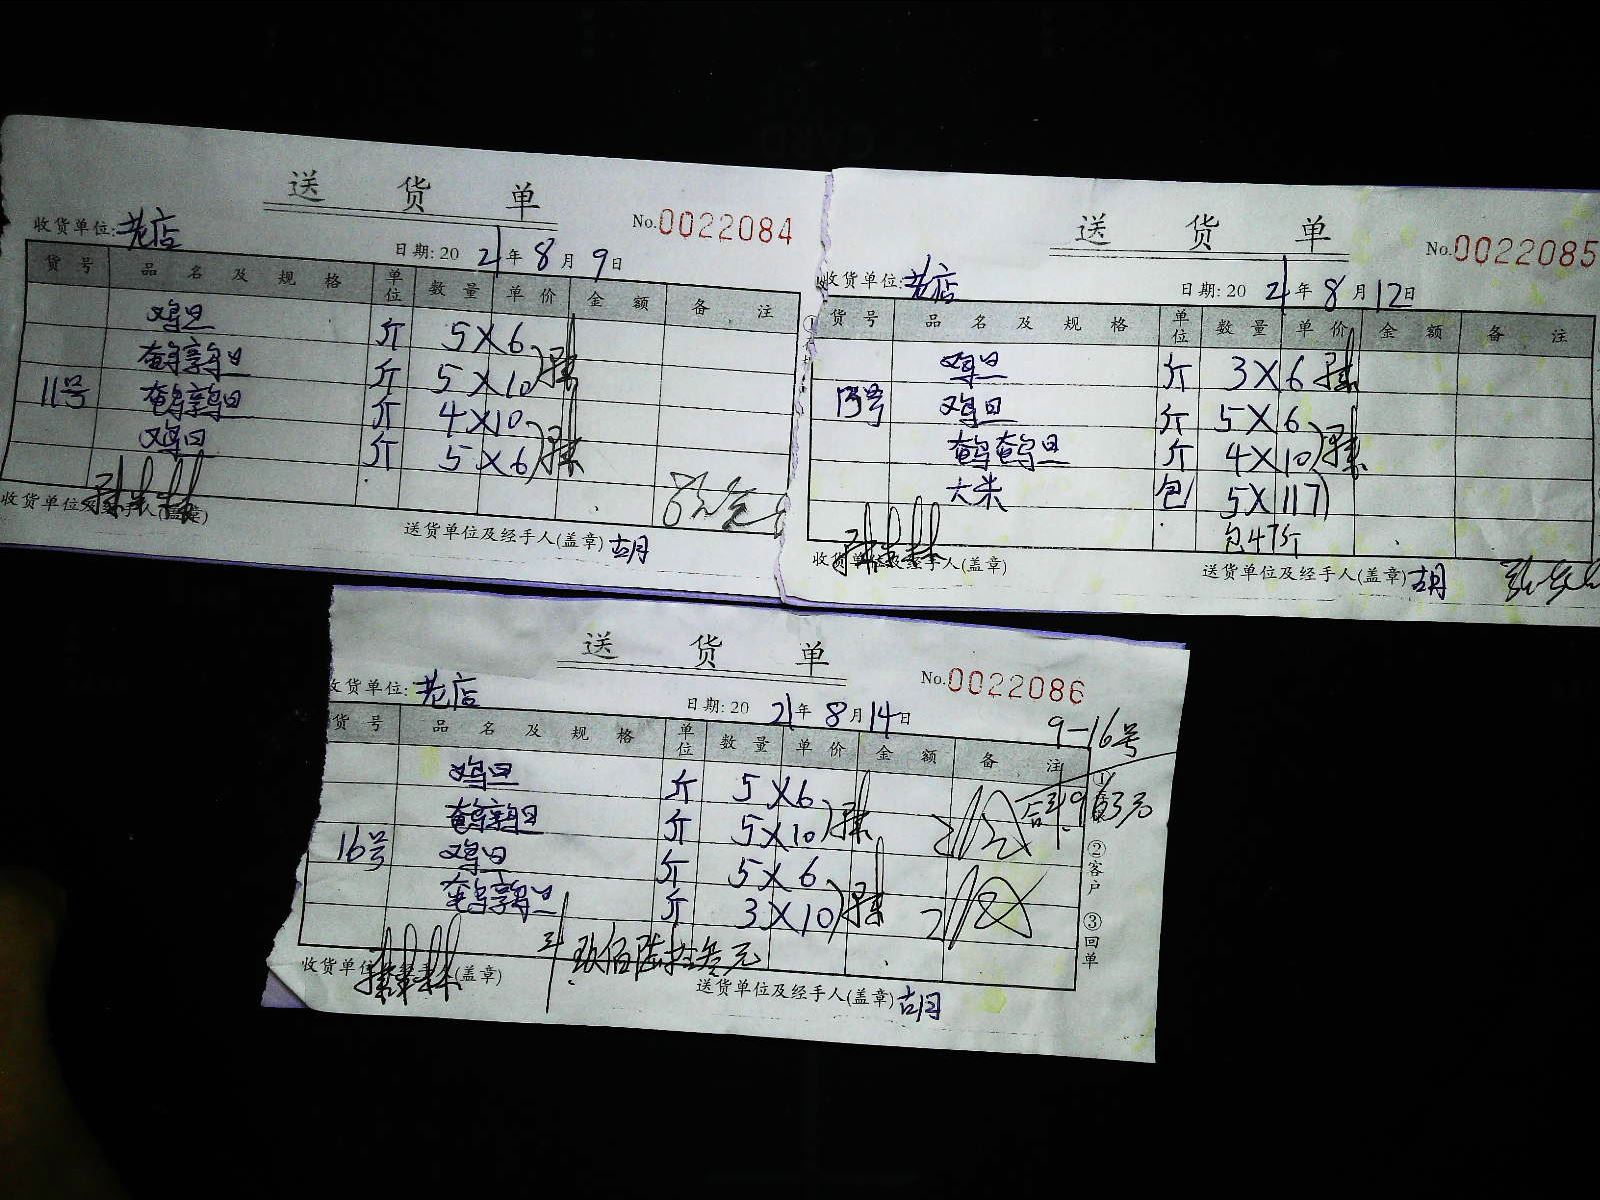 送货单
No.0022084
收货单位:老店
日期:2021年8月9日
货号 品名及规格 单位 数量 单价 金额 备注
鸡旦 斤 5×6
鹌鹑旦 斤 5×10
11号 鹌鹑旦 斤 4×10
鸡旦 斤 5×6
收货单位及经手人(盖章)
送货单位及经手人(盖章) 胡
送货单
No.0022085
收货单位:老店
日期:2021年8月12日
货号 品名及规格 单位 数量 单价 金额 备注
鸡旦 斤 3×6
13号 鸡旦 斤 5×6
鹌鹌旦 斤 4×10
大米 包 5×117
包47斤
收货单位及经手人(盖章)
送货单位及经手人(盖章) 胡
送货单
No.0022086
收货单位:老店
日期:2021年8月14日
9-16号
货号 品名及规格 单位 数量 单价 金额 备注
合计963元
鸡旦 斤 5×6
鹌鹑旦 斤 5×10
16号 鸡旦 斤 5×6
鹌鹑旦 斤 3×10
②客户 ③回单
计玖佰陆拾叁元
收货单位及经手人(盖章)
送货单位及经手人(盖章) 胡